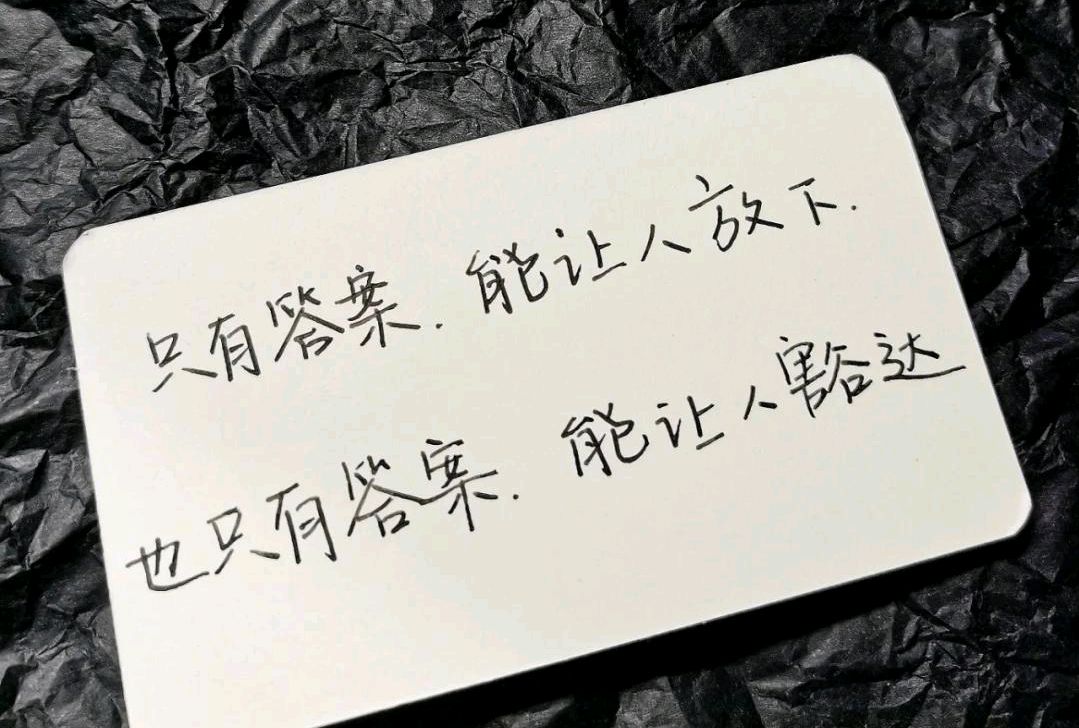 只有答案.能让人放下.
也只有答案.能让人豁达